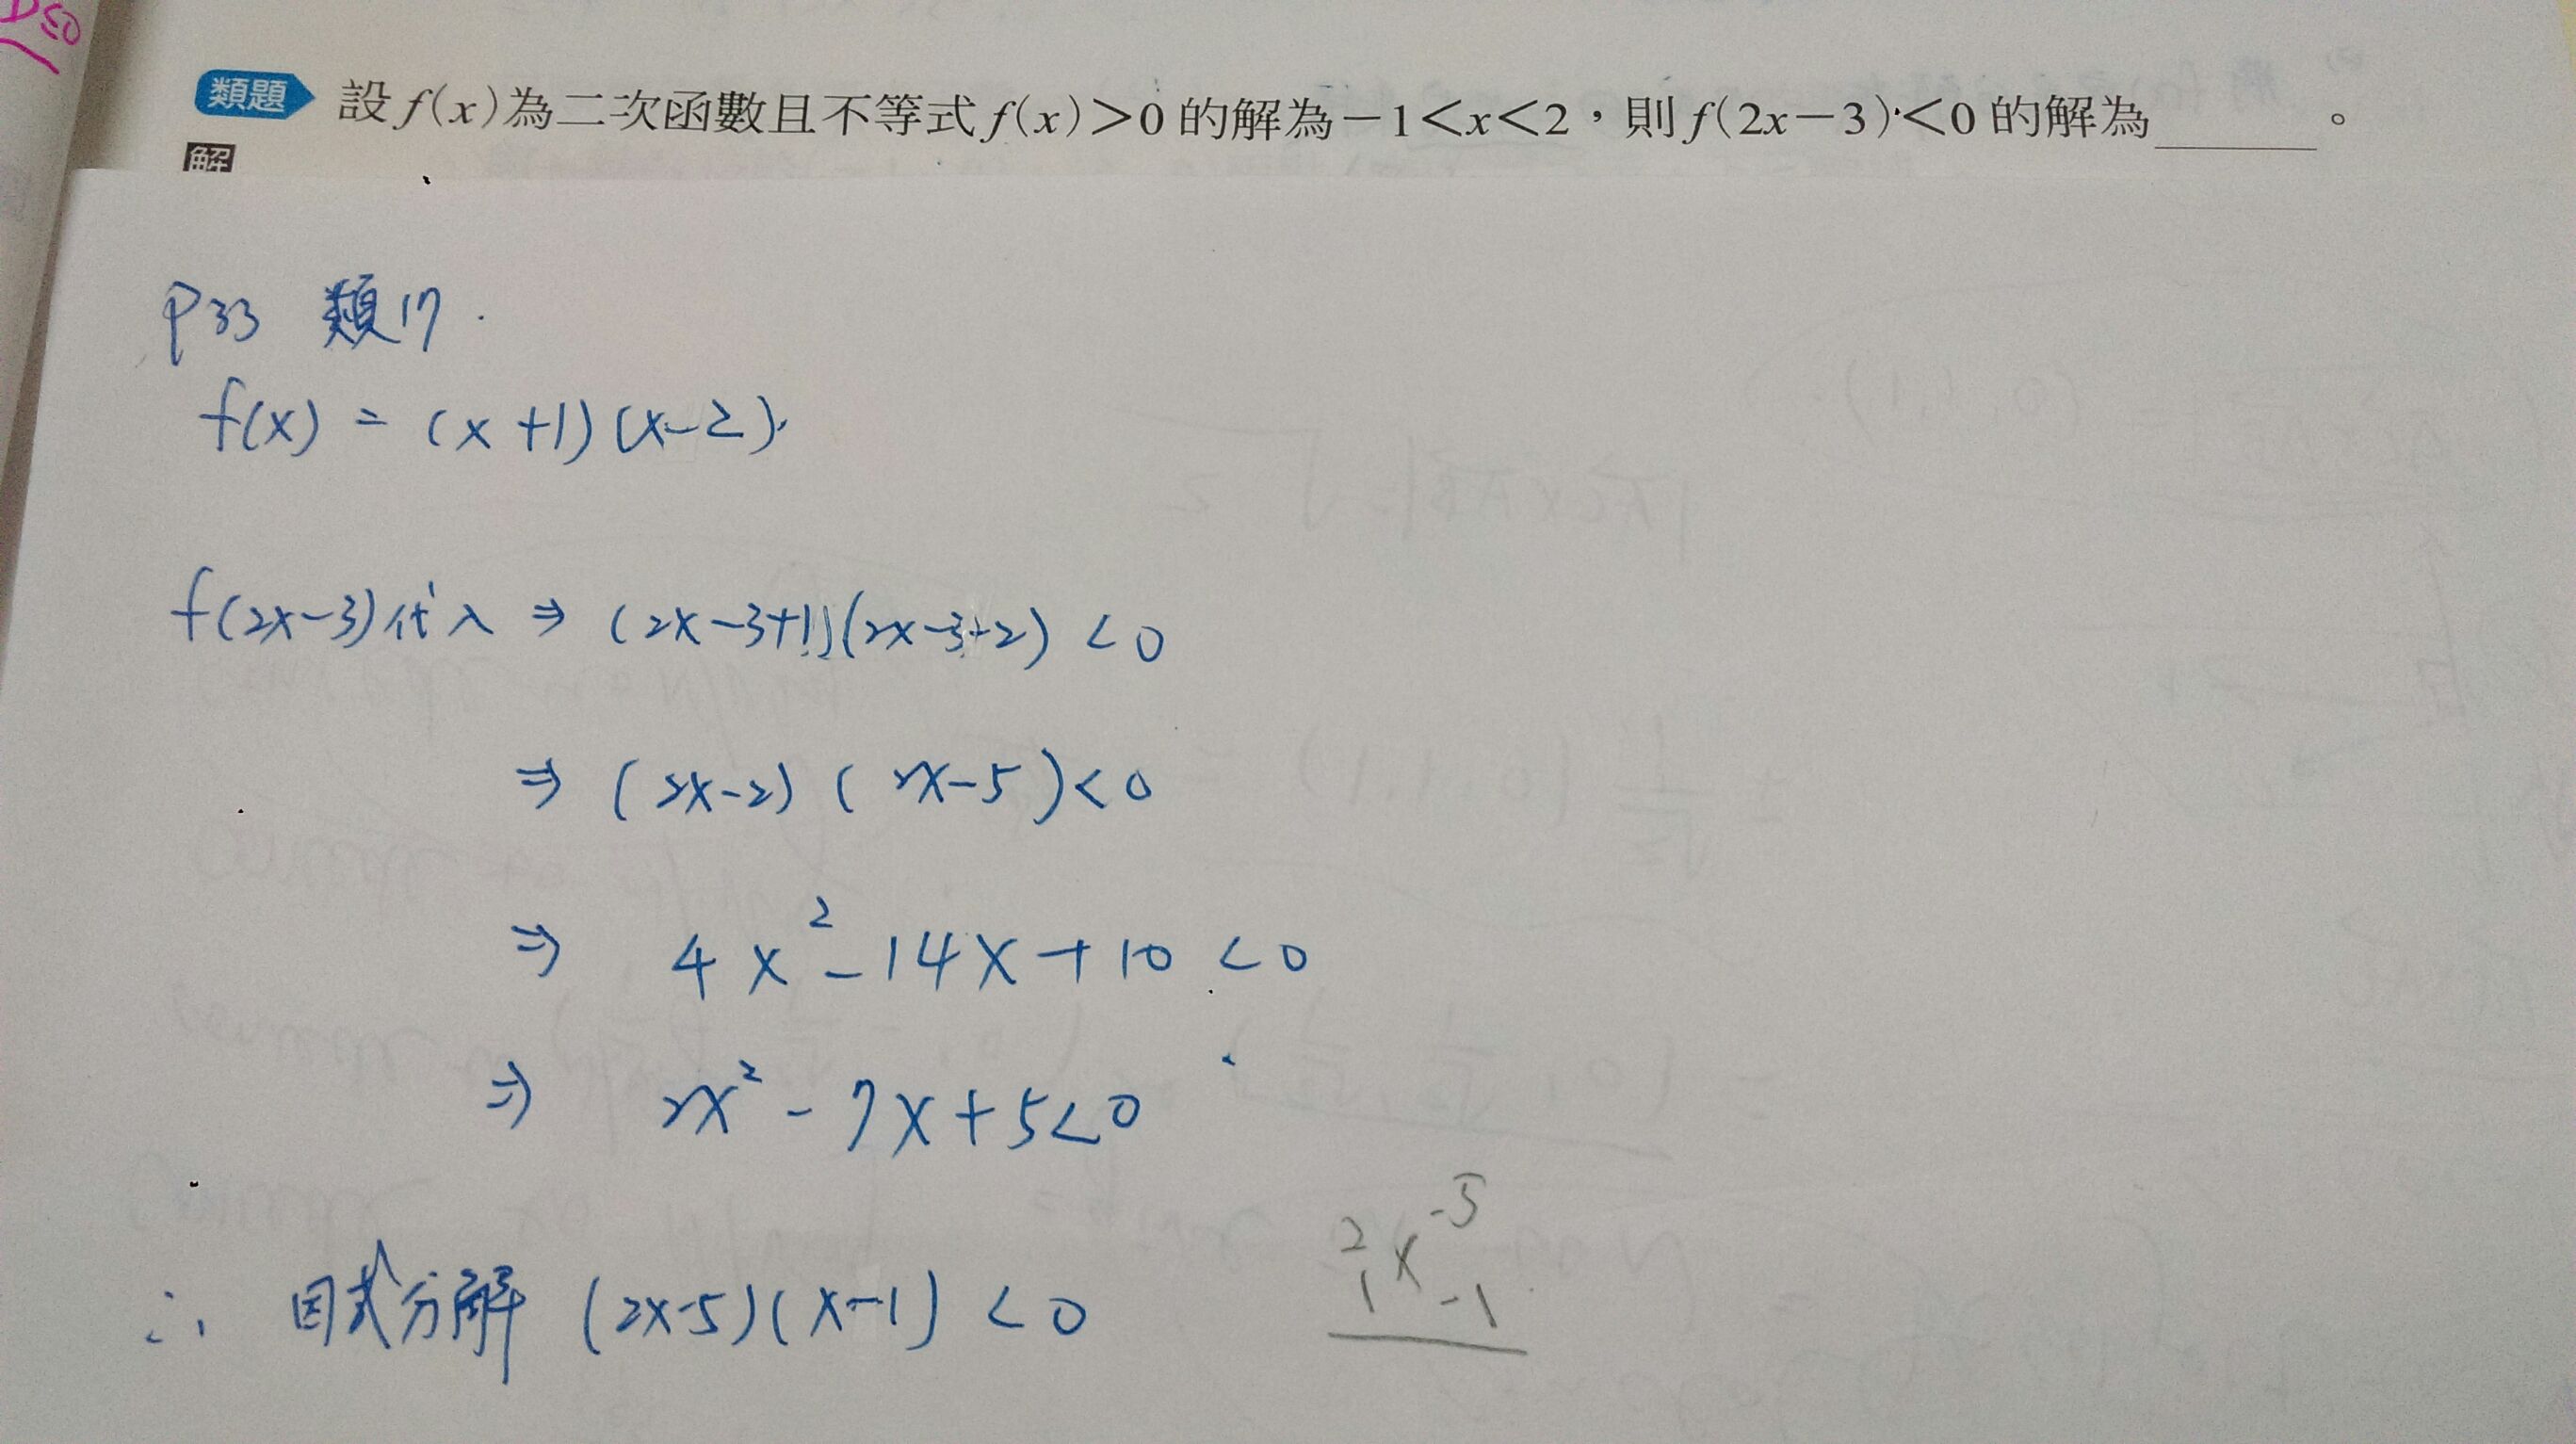 類題 設f(x)為二次函數且不等式f(x)>0的解為-1<x<2,則f(2x-3)<0的解為______。
解
P33 類17.
f(x) = (x+1)(x-2)
f(2x-3)代入 ⇒ (2x-3+1)(2x-3-2) < 0
⇒ (2x-2) (2x-5) < 0
⇒ 4x² - 14x + 10 < 0
⇒ 2x² - 7x + 5 < 0
2 x -5
1 -1
∴ 因式分解 (2x-5)(x-1) < 0